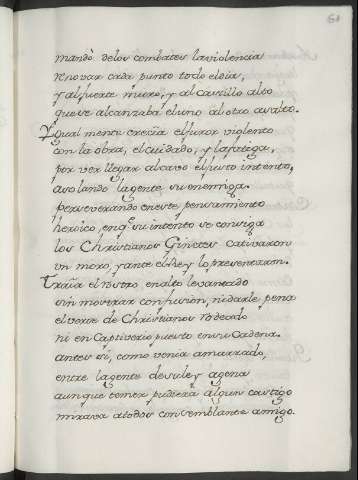 mandò delos combates la violencia
renovar cada punto todo el dia,
y al fuerte muro, y al castillo alto
que se alcanzaba el uno al otro asalto.
Ygual mente crecia el furor violento
con la obra, el cuidado, y la fatiga,
por ver llegar al cavo el justo intento,
asolando la gente su enemiga.
perseverando en este pensamiento
heroico, enq.e su intento se consiga
los Christianos Ginetes cativaron
un moro, y ante el Rey lo presentaron.
traìa el rostro en alto levantado
sin mostrar confusion, ni darle pena
el verse de Christianos Rodeado
ni en Captiverio puesto en su Cadena.
antes si, como venia amarrado,
entre la gente de su ley agena
aunque temer pudiera algun castigo
mirava a todos con semblante amigo.